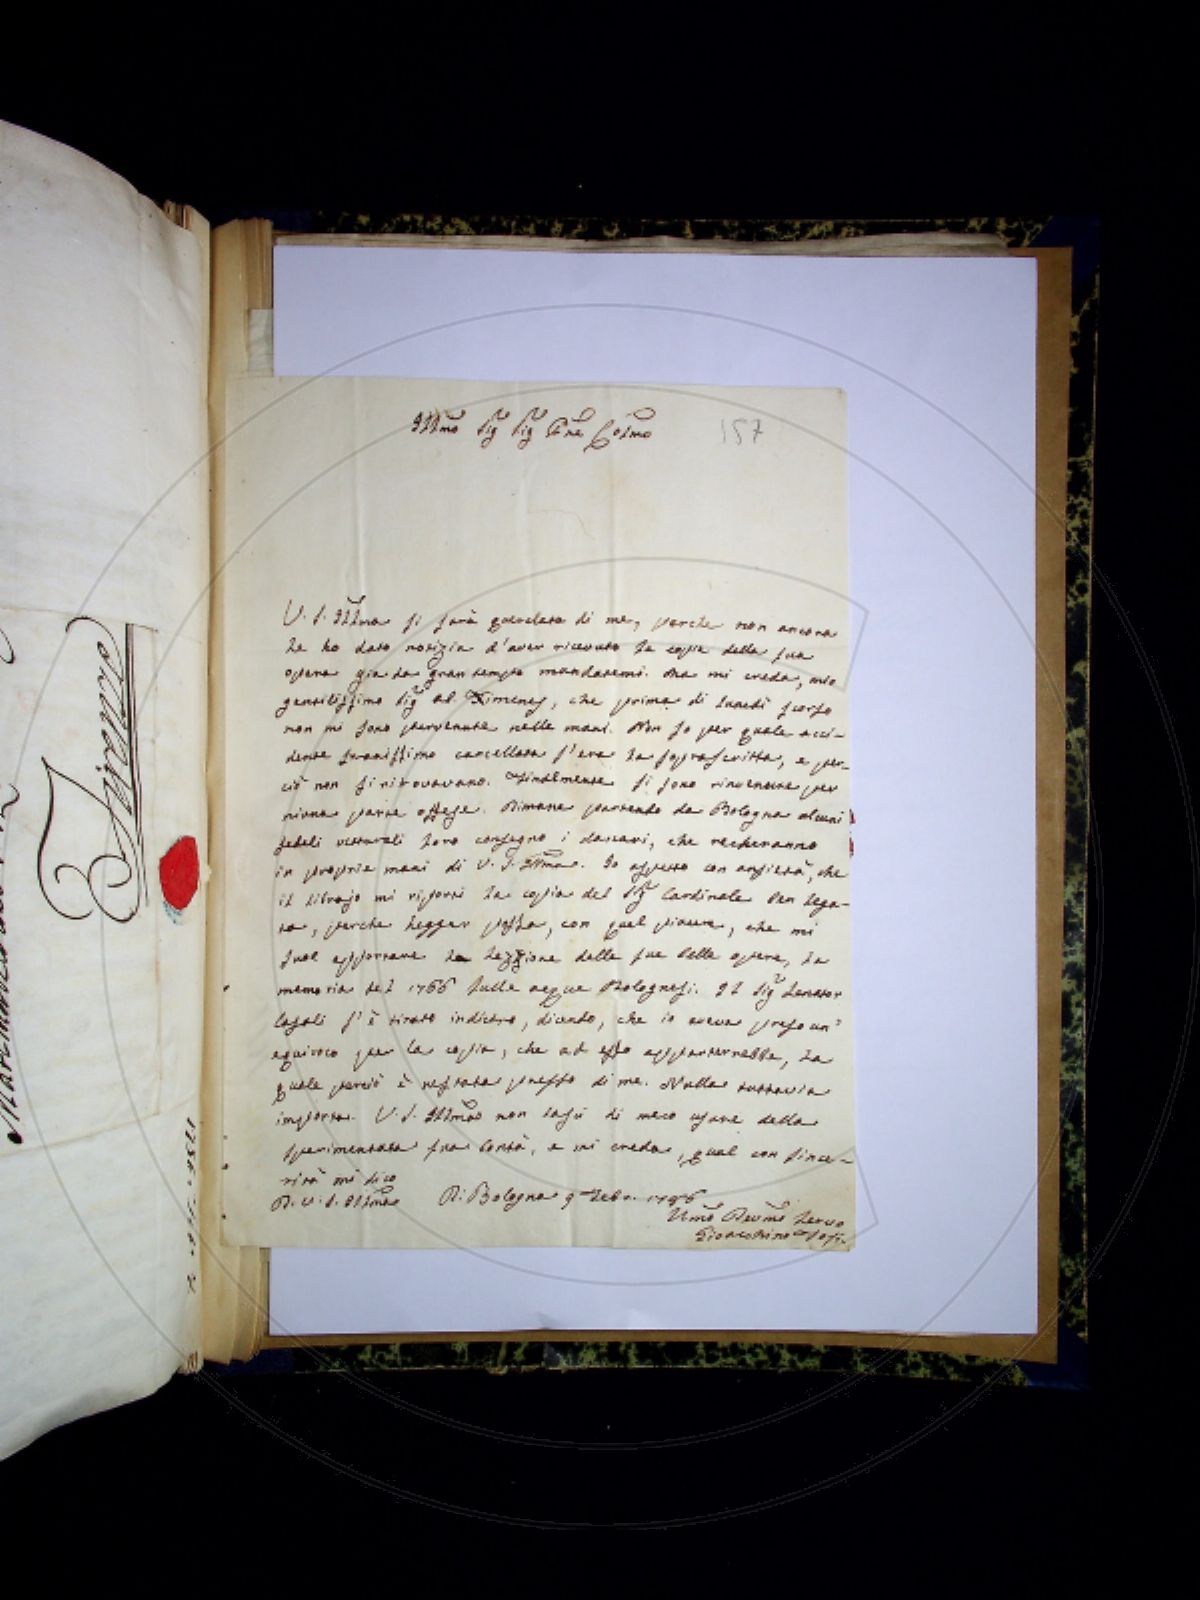 Illmo Sig Sig Pne Colmo
157
V. S. Illma si sarà querelata di me, perche non ancora
le ho dato notizia d'aver ricevuto le copie della sua
opera gia da gran tempo mandatemi. Ma mi creda, mio
gentilissimo Sig Ab. Ximenes, che prima di lunedì scorso
non mi sono pervenute nelle mani. Non so per quale acci-
dente stranissimo cancellata s'era la soprascritta, e per-
ciò non si ritrovavano. Finalmente si sono rinvenute per
niuna parte offese. Dimane partendo da Bologna alcuni
fedeli vetturali loro consegno i danari, che recheranno
in propria mani di V. S. Illma. Io aspetto con ansietà, che
il librajo mi riporti la copia del Sig Cardinale ben lega-
ta, perche legger possa, con quel piacere, che mi
suol apportare la lezzione delle sue belle opere, la
memoria del 1766 sulle acque Bolognesi. Il Sig Senator
Casali s'è tirato indietro, dicendo, che io aveva preso un'
equivoco per la copia, che ad esso apparterrebbe, la
quale perciò è restata presso di me. Nulla tuttavia
importa. V. S. Illma non lasci di meco usare della
sperimentata sua bontà, e mi creda, qual con since-
rità mi dico
D. V. S. Illma Di Bologna 9
Umo Devmo Servo
Gioacchino
Firenze